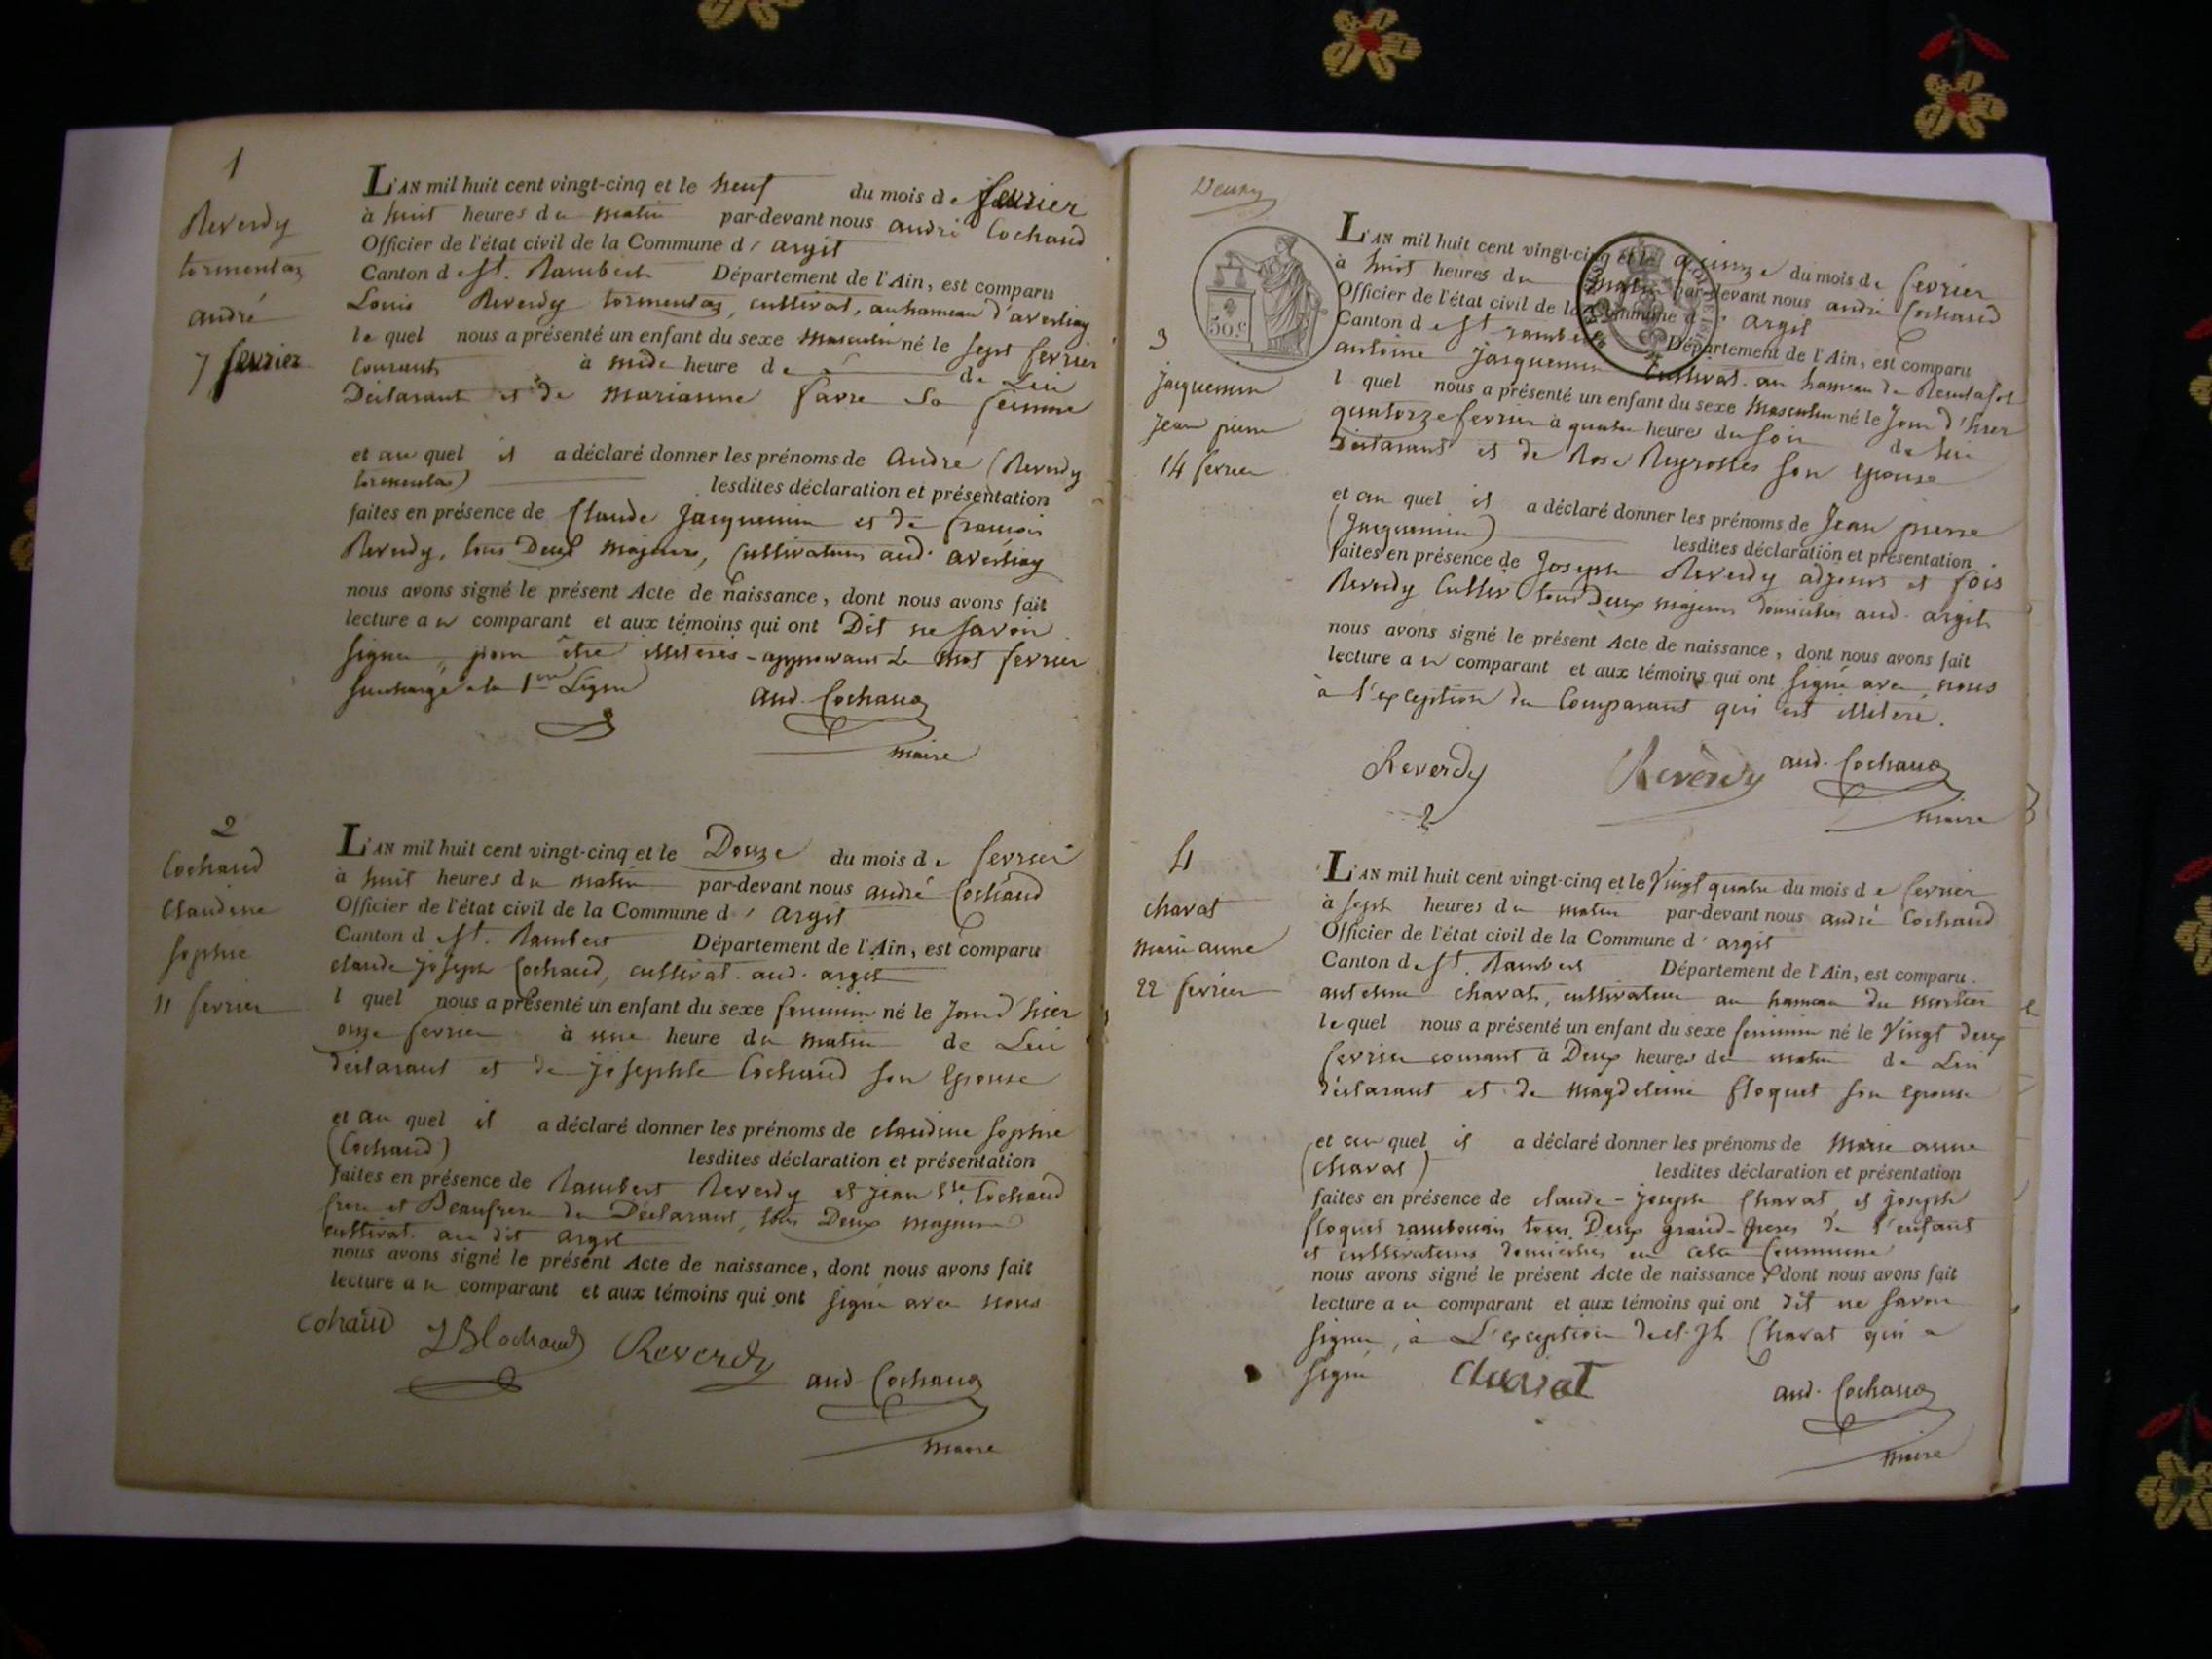 1
Reverdy
tormentaz
andré
7 fevrier
L'AN mil huit cent vingt-cinq et le neuf du mois de fevrier
à huit heures du matin par-devant nous andré Cochaud
Officier de l'état civil de la Commune d' argit
Canton de St. Rambert Département de l'Ain, est comparu
Louis Reverdy tormentaz, cultivat. au hameau d'averliaz
lequel nous a présenté un enfant du sexe masculin né le sept fevrier
courant à heure de de Lui
Déclarant et de marianne favre sa femme
et au quel il a déclaré donner les prénoms de andré (Reverdy
tormentaz) lesdites déclaration et présentation
faites en présence de Claude Jacquemin et de francois
Reverdy, tous Deux majeurs, cultivateurs aud. averliaz
nous avons signé le présent Acte de naissance, dont nous avons fait
lecture au comparant et aux témoins qui ont Dit ne savoir
signer, pour être illiterés - approuvant le mot fevrier
surchargé a la 1ere Ligne
and. Cochaud
maire
2
Cochaud
Claudine
sophie
11 fevrier
L'AN mil huit cent vingt-cinq et le Douze du mois de fevrier
à huit heures du matin par-devant nous andré Cochaud
Officier de l'état civil de la Commune d' argit
Canton de St. Rambert Département de l'Ain, est comparu
claude joseph Cochaud, cultivat. aud. argit
l quel nous a présenté un enfant du sexe feminin né le Jour d'hier
onze fevrier à une heure du matin de Lui
déclarant et de josephte Cochaud son epouse
et au quel il a déclaré donner les prénoms de claudine sophie
(Cochaud) lesdites déclaration et présentation
faites en présence de Rambert Reverdy et jean Bte. Cochaud
frere et Beaufrere du Déclarant, tous Deux majeurs
cultivat. au dit argit
nous avons signé le présent Acte de naissance, dont nous avons fait
lecture au comparant et aux témoins qui ont signé avec nous
cohaud JBCochaud Reverdy and. Cochaud
maire
3
jacquemin
jean pierre
14 fevrier
50 c
L'AN mil huit cent vingt-cinq et le quinze du mois de fevrier
à huit heures du matin par-devant nous andré Cochaud
Officier de l'état civil de la Commune d' argit
Canton de St rambert Département de l'Ain, est comparu
antoine jacquemin cultivat. au hameau de
l quel nous a présenté un enfant du sexe masculin né le Jour d'hier
quatorze fevrier à quatre heures du soir de lui
Déclarant et de Rose son epouse
et au quel il a déclaré donner les prénoms de Jean pierre
(Jacquemin) lesdites déclaration et présentation
faites en présence de Joseph Reverdy adjoint et fois
Reverdy Cultiv tous Deux majeurs domiciliés aud. argit
nous avons signé le présent Acte de naissance, dont nous avons fait
lecture au comparant et aux témoins qui ont signé avec nous
à l'exception du Comparant qui est illiteré.
Reverdy Reverdy and. Cochaud
maire
4
charat
marie anne
22 fevrier
L'AN mil huit cent vingt-cinq et le Vingt quatre du mois de fevrier
à sept heures du matin par-devant nous andré Cochaud
Officier de l'état civil de la Commune d' argit
Canton de St. Rambert Département de l'Ain, est comparu.
antelme charat, cultivateur au hameau du mortier
lequel nous a présenté un enfant du sexe feminin né le Vingt deux
fevrier courant à Deux heures du matin de Lui
déclarant et de magdeleine floquet son epouse
et au quel il a déclaré donner les prénoms de Marie anne
(charat) lesdites déclaration et présentation
faites en présence de claude-joseph Charat, et joseph
floquet tous Deux grand-peres de l'enfant
et cultivateurs domiciliés en cette Commune
nous avons signé le présent Acte de naissance, dont nous avons fait
lecture au comparant et aux témoins qui ont dit ne savoir
signer, à L'exception de cl. jh Charat qui a
signé Charat and. Cochaud
maire